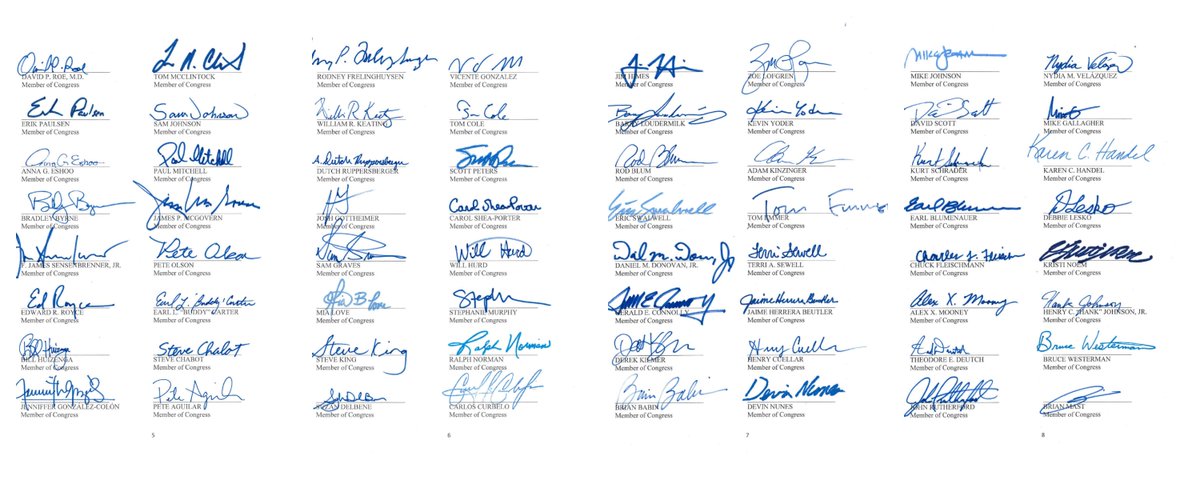 David P. Roe
DAVID P. ROE, M.D.
Member of Congress
TOM MCCLINTOCK
Member of Congress
Erik Paulsen
ERIK PAULSEN
Member of Congress
Sam Johnson
SAM JOHNSON
Member of Congress
Anna G. Eshoo
ANNA G. ESHOO
Member of Congress
Paul Mitchell
PAUL MITCHELL
Member of Congress
BRADLEY BYRNE
Member of Congress
JAMES P. MCGOVERN
Member of Congress
F. JAMES SENSENBRENNER, JR.
Member of Congress
Pete Olson
PETE OLSON
Member of Congress
Ed Royce
EDWARD R. ROYCE
Member of Congress
Earl L. "Buddy" Carter
EARL L. "BUDDY" CARTER
Member of Congress
Bill Huizenga
BILL HUIZENGA
Member of Congress
Steve Chabot
STEVE CHABOT
Member of Congress
JENNIFFER GONZÁLEZ-COLÓN
Member of Congress
Pete Aguilar
PETE AGUILAR
Member of Congress
5
RODNEY FRELINGHUYSEN
Member of Congress
VICENTE GONZALEZ
Member of Congress
William R. Keating
WILLIAM R. KEATING
Member of Congress
Tom Cole
TOM COLE
Member of Congress
A. Dutch Ruppersberger
DUTCH RUPPERSBERGER
Member of Congress
SCOTT PETERS
Member of Congress
JOSH GOTTHEIMER
Member of Congress
Carol Shea-Porter
CAROL SHEA-PORTER
Member of Congress
SAM GRAVES
Member of Congress
Will Hurd
WILL HURD
Member of Congress
Mia B Love
MIA LOVE
Member of Congress
STEPHANIE MURPHY
Member of Congress
Steve King
STEVE KING
Member of Congress
Ralph Norman
RALPH NORMAN
Member of Congress
SUZAN DELBENE
Member of Congress
CARLOS CURBELO
Member of Congress
6
JIM HIMES
Member of Congress
ZOE LOFGREN
Member of Congress
BARRY LOUDERMILK
Member of Congress
Kevin Yoder
KEVIN YODER
Member of Congress
Rod Blum
ROD BLUM
Member of Congress
ADAM KINZINGER
Member of Congress
Eric Swalwell
ERIC SWALWELL
Member of Congress
Tom Emmer
TOM EMMER
Member of Congress
DANIEL M. DONOVAN, JR.
Member of Congress
Terri Sewell
TERRI A. SEWELL
Member of Congress
GERALD E. CONNOLLY
Member of Congress
Jaime Herrera Beutler
JAIME HERRERA BEUTLER
Member of Congress
DEREK KILMER
Member of Congress
Henry Cuellar
HENRY CUELLAR
Member of Congress
Brian Babin
BRIAN BABIN
Member of Congress
Devin Nunes
DEVIN NUNES
Member of Congress
7
MIKE JOHNSON
Member of Congress
Nydia Velázquez
NYDIA M. VELÁZQUEZ
Member of Congress
David Scott
DAVID SCOTT
Member of Congress
MIKE GALLAGHER
Member of Congress
Kurt Schrader
KURT SCHRADER
Member of Congress
Karen C. Handel
KAREN C. HANDEL
Member of Congress
Earl Blumenauer
EARL BLUMENAUER
Member of Congress
D Lesko
DEBBIE LESKO
Member of Congress
CHUCK FLEISCHMANN
Member of Congress
KRISTI NOEM
Member of Congress
Alex X. Mooney
ALEX X. MOONEY
Member of Congress
Hank Johnson
HENRY C. "HANK" JOHNSON, JR.
Member of Congress
THEODORE E. DEUTCH
Member of Congress
Bruce Westerman
BRUCE WESTERMAN
Member of Congress
JOHN RUTHERFORD
Member of Congress
BRIAN MAST
Member of Congress
8